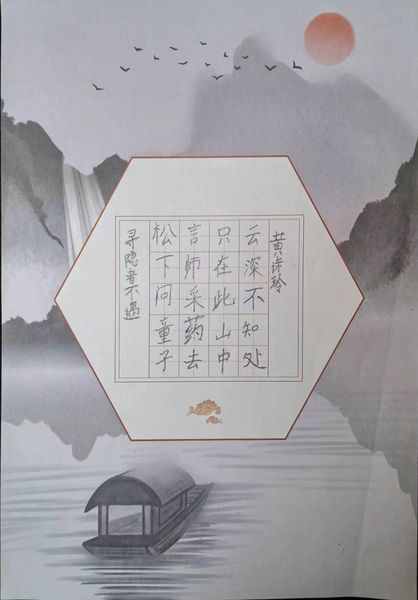 寻隐者不遇
松下问童子
言师采药去
只在此山中
云深不知处
黄诗玲